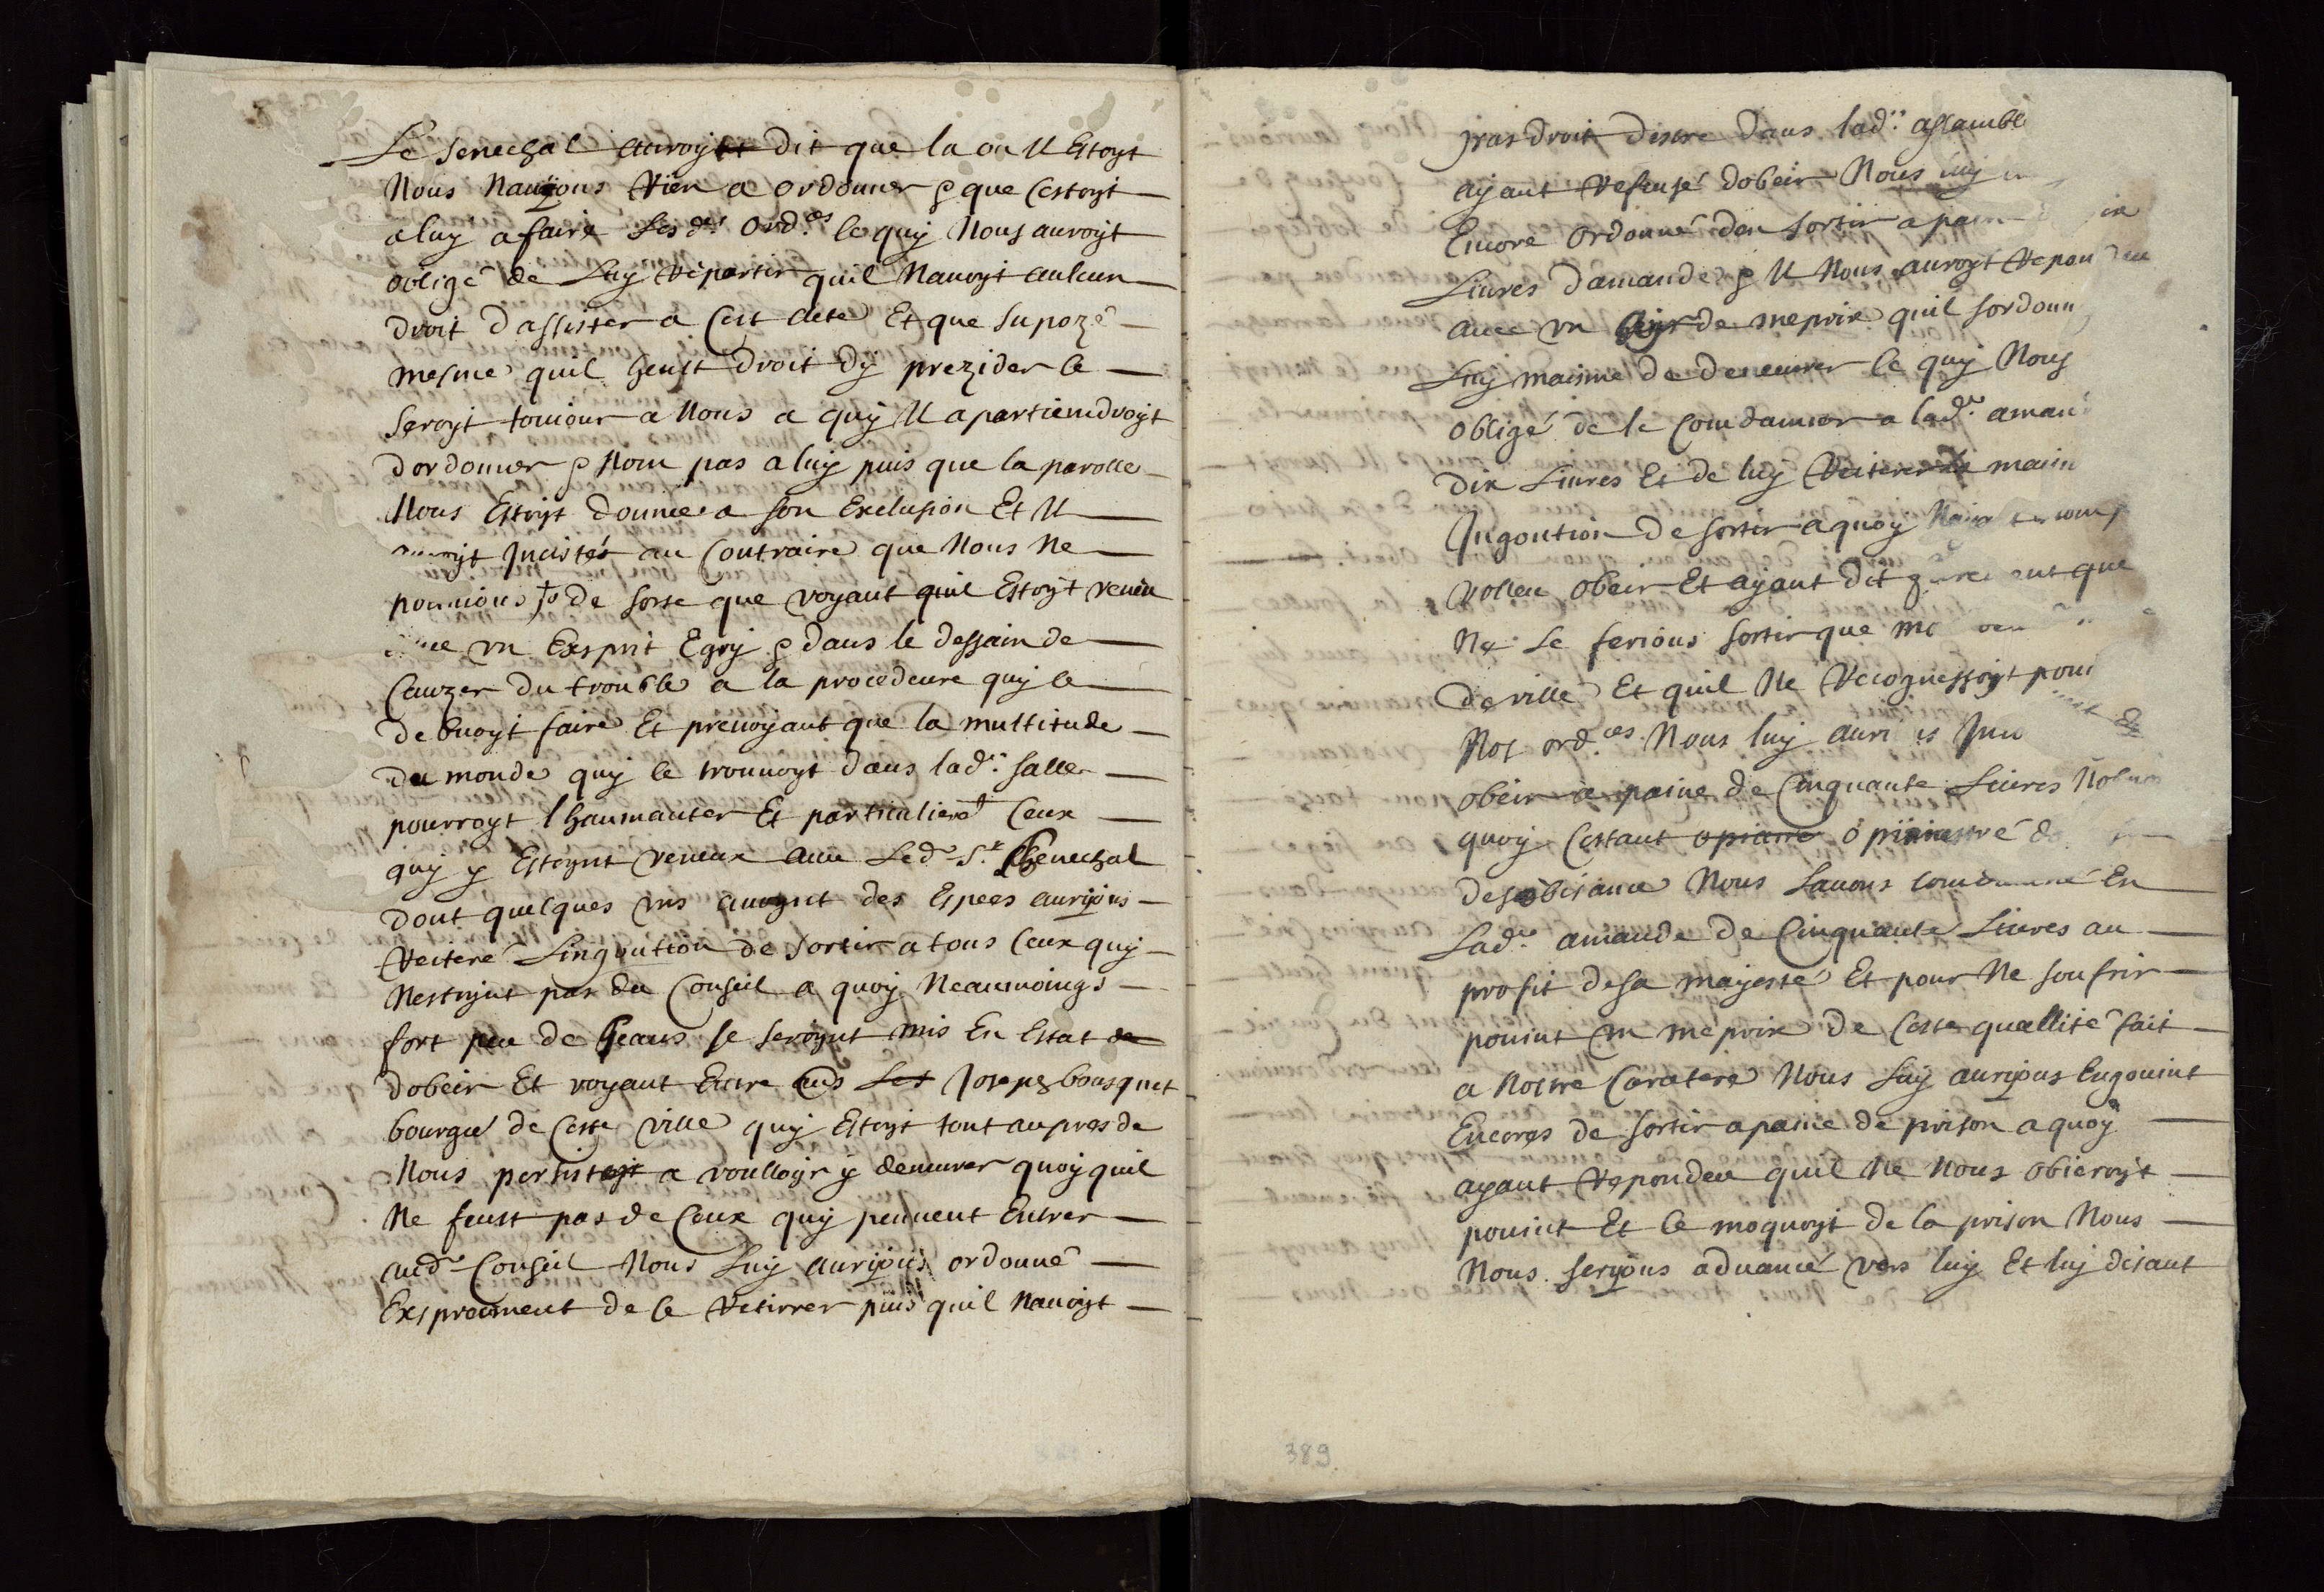 Le senechal auroyt dit que la ou Il Estoyt
Nous Nauyons Rien a ordonner & que Cestoyt
a luy a faire Lesd.es ord.ces le quy Nous auroyt
obligé de Luy Repartir quil Nauoyt aulcun
droit dassister a Cest acte Et que supozé
mesme quil heust droit dy prezider le
seroyt toujour a Nous a quy Il apartiendroyt
dordonner & Nom pas a luy puis que la parolle
Nous Estoyt donnee a son Exclusion Et Il
Incisté au Contraire que Nous Ne
pouuions de sorte que voyant quil Estoyt venu
un Esprit Egry & dans le dessain de
Cauzer du trouble a la procedeure quy le
debuoyt faire Et preuoyant que la multitude
du monde quy le trouuoyt dans lad.e salle
pourroyt lhaumanter Et particulierem.t Ceux
quy y Estoynt veneux auec Led. S.r senechal
dont quelques uns auoynt des Espees auryons
Reiteré Lingontion de sortir a tous Ceux quy
Nestoynt pas du Conseil a quoy Neaumoings
fort peu de geans se seroynt mis En Estat de
dobeir Et voyant Entre aus Les Josepz bousquet
bourgü de Ceste ville quy Estoyt tout aupres de
Nous persistoyt a voulloyr y demurer quoy quil
Ne feust pas de Ceux quy peuuent Entrer
aud. Conseil Nous Luy auryons ordonné
Expreument de le Retirrer puis quil Nauoyt
pas droit destre dans lad.e assamble
ayant Refusé dobeir Nous luy
Encore ordonné den sortir a
Liures damande & Il Nous auroyt Repondeu
auec un de meprix quil sordonn
Luy maisme de demeurer le quy Nous
obligé de le Condamner a lad.e aman
dix Liures Et de luy Reiterer la maim
Ingontion de sortir a quoy
volleu obeir Et ayant dit que
Ne le ferions sortir que
de ville Et quil Ne Recognessoyt pour
Nos ord.ces Nous luy
obeir a paine de Cinquante Liures
quoy Cestant opiniastré
desobeisance Nous Lauons condamné En
Lad.e amande de Cinquante Liures au
profit de sa mayesté Et pour Ne soufrir
pouint un meprix de Ceste quallité fait
a Nostre Caratere Nous Luy auryons Engouint
Encores de sortir a paine de prison a quoy
ayant Repondeu quil Ne Nous obieroyt
pouint Et le moquoyt de la prison Nous
Nous seryons aduancé vers luy Et luy disant
389